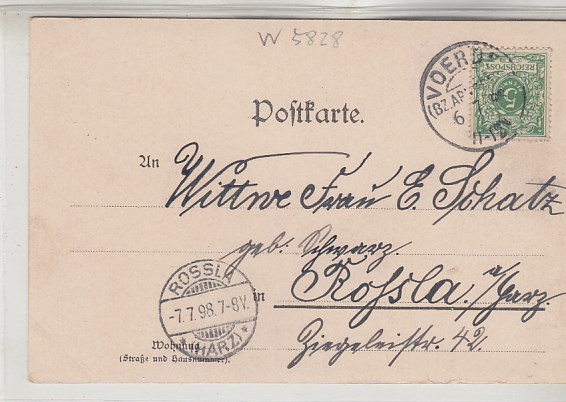 W 5828
REICHSPOST
5
VOERD
(BZ.AR
6 7 98
11-12N
Postkarte.
An Wittwe Frau E. Schatz
geb. Schwarz.
in Rossla. a/Harz.
Ziegeleistr. 42.
ROSSLA
-7.7.98.7-8V.
*(HARZ)*
Wohnung
(Straße und Hausnummer).